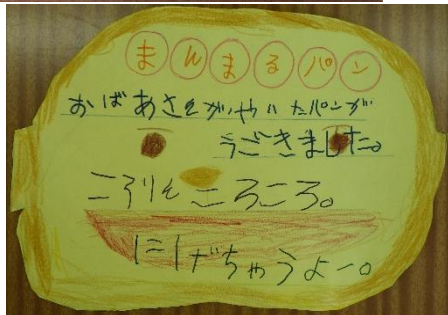 まんまるパン
おばあさんがやいたパンが
うごきました。
ころりんころころ。
にげちゃうよー。